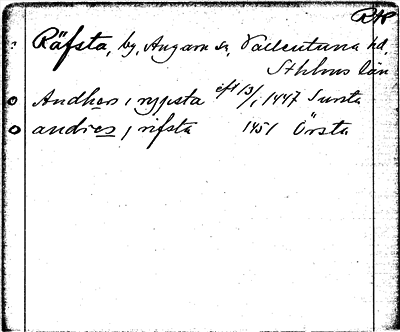 RAP
Räfsta, by, Angarn sn, Vallentuna hd,
Sthlms län
Andhers i rypsta eft 13/1 1447 Sunsta
andres j rifsta 1451 Örsta